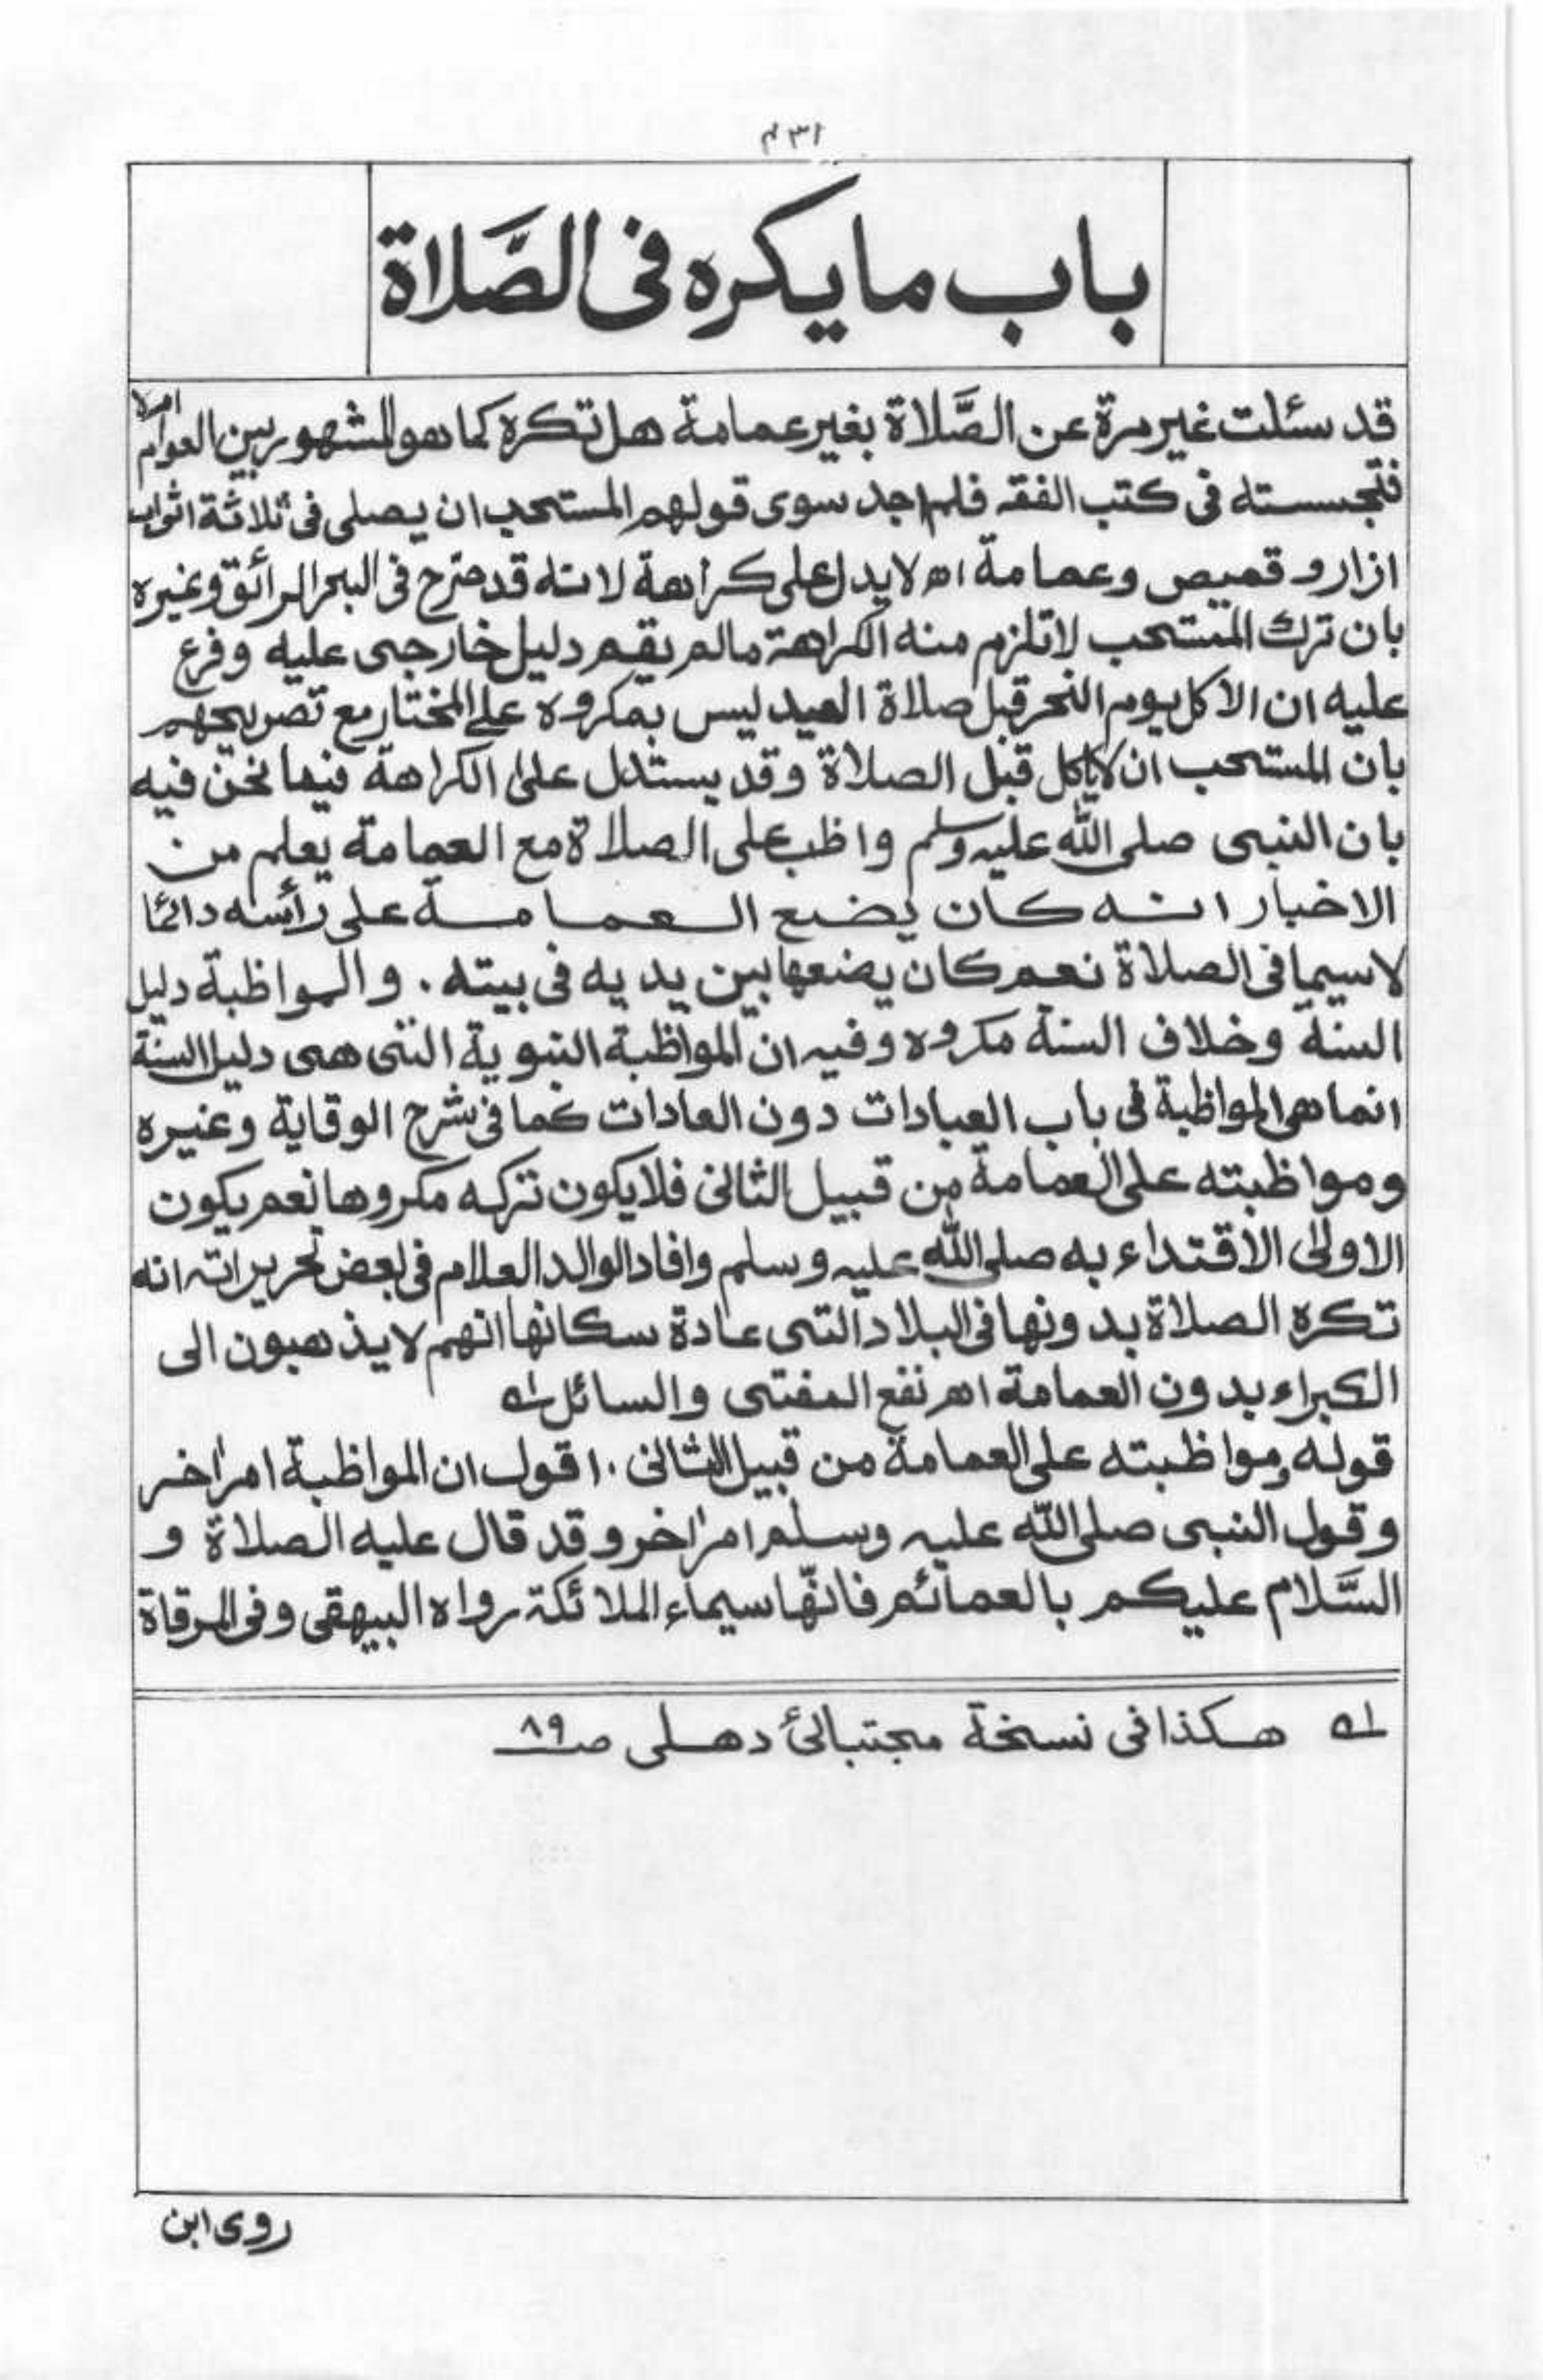 باب ما یکره فی الصَّلاة
قد سئلت غیر مرة عن الصَّلاة بغیر عمامة هل تکره کما هو المشهور بین العوام ام لا
فتجسسته فی کتب الفقه فلم اجد سوی قولهم المستحب ان یصلی فی ثلاثة اثواب
ازار و قمیص وعمامة اھ لا یدل علی کراهة لانه قد صرح فی البحر الرائق وغیره
بان ترك المستحب لا تلزم منه الکراهة ما لم یقم دلیل خارجی علیه وفرع
علیه ان الاکل یوم النحر قبل صلاة العید لیس بمکروه علی المختار مع تصریحهم
بان المستحب ان لا یاکل قبل الصلاة وقد یستدل علیٰ الکراهة فیما نحن فیه
بان النبی صلی الله علیہ وسلم واظب علی الصلاة مع العمامة یعلم من
الاخبار انه کان یضع العمامة علی رأسه دائما
لا سیما فی الصلاة نعم کان یضعها بین یدیه فی بیته ۔ والمواظبة دلیل
السنة وخلاف السنة مکروه وفیہ ان المواظبة النبویة التی هی دلیل السنة
انما هی المواظبة فی باب العبادات دون العادات کما فی شرح الوقایة وغیره
ومواظبته علی العمامة من قبیل الثانی فلا یکون ترکه مکروها نعم یکون
الاولیٰ الاقتداء به صلی الله علیہ وسلم وافاد الوالد العلام فی بعض تحریراته انه
تکره الصلاة بدونها فی البلاد التی عادة سکانها انهم لا یذهبون الی
الکبراء بدون العمامة اھ نفع المفتی والسائل لـه
قوله ومواظبته علی العمامة من قبیل الثانی ۔ اقول ان المواظبة امر اٰخر
وقول النبی صلی الله علیہ وسلم امر اٰخر وقد قال علیه الصلاة و
السَّلام علیکم بالعمائم فانّها سیماء الملائکة رواه البیهقی وفی المرقاة
لـه هکذا فی نسخة مجتبائی دهلی صـ ۸۹
روی ابن